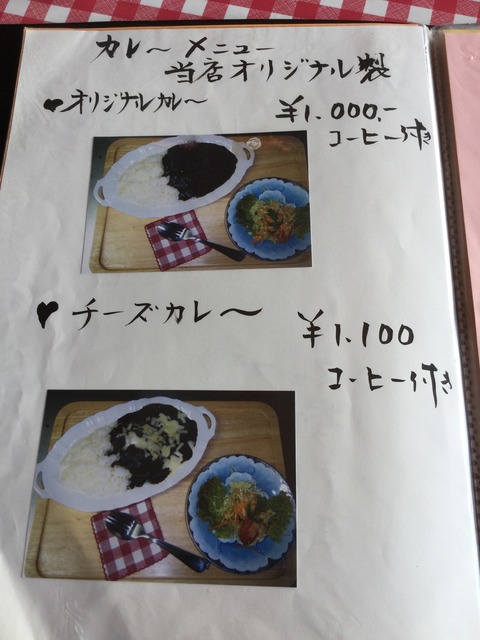 カレ〜 メニュー
当店オリジナル製
♥オリジナルカレ〜
¥1.000.-
コーヒー付き
♥チーズカレ〜
¥1.100
コーヒー付き